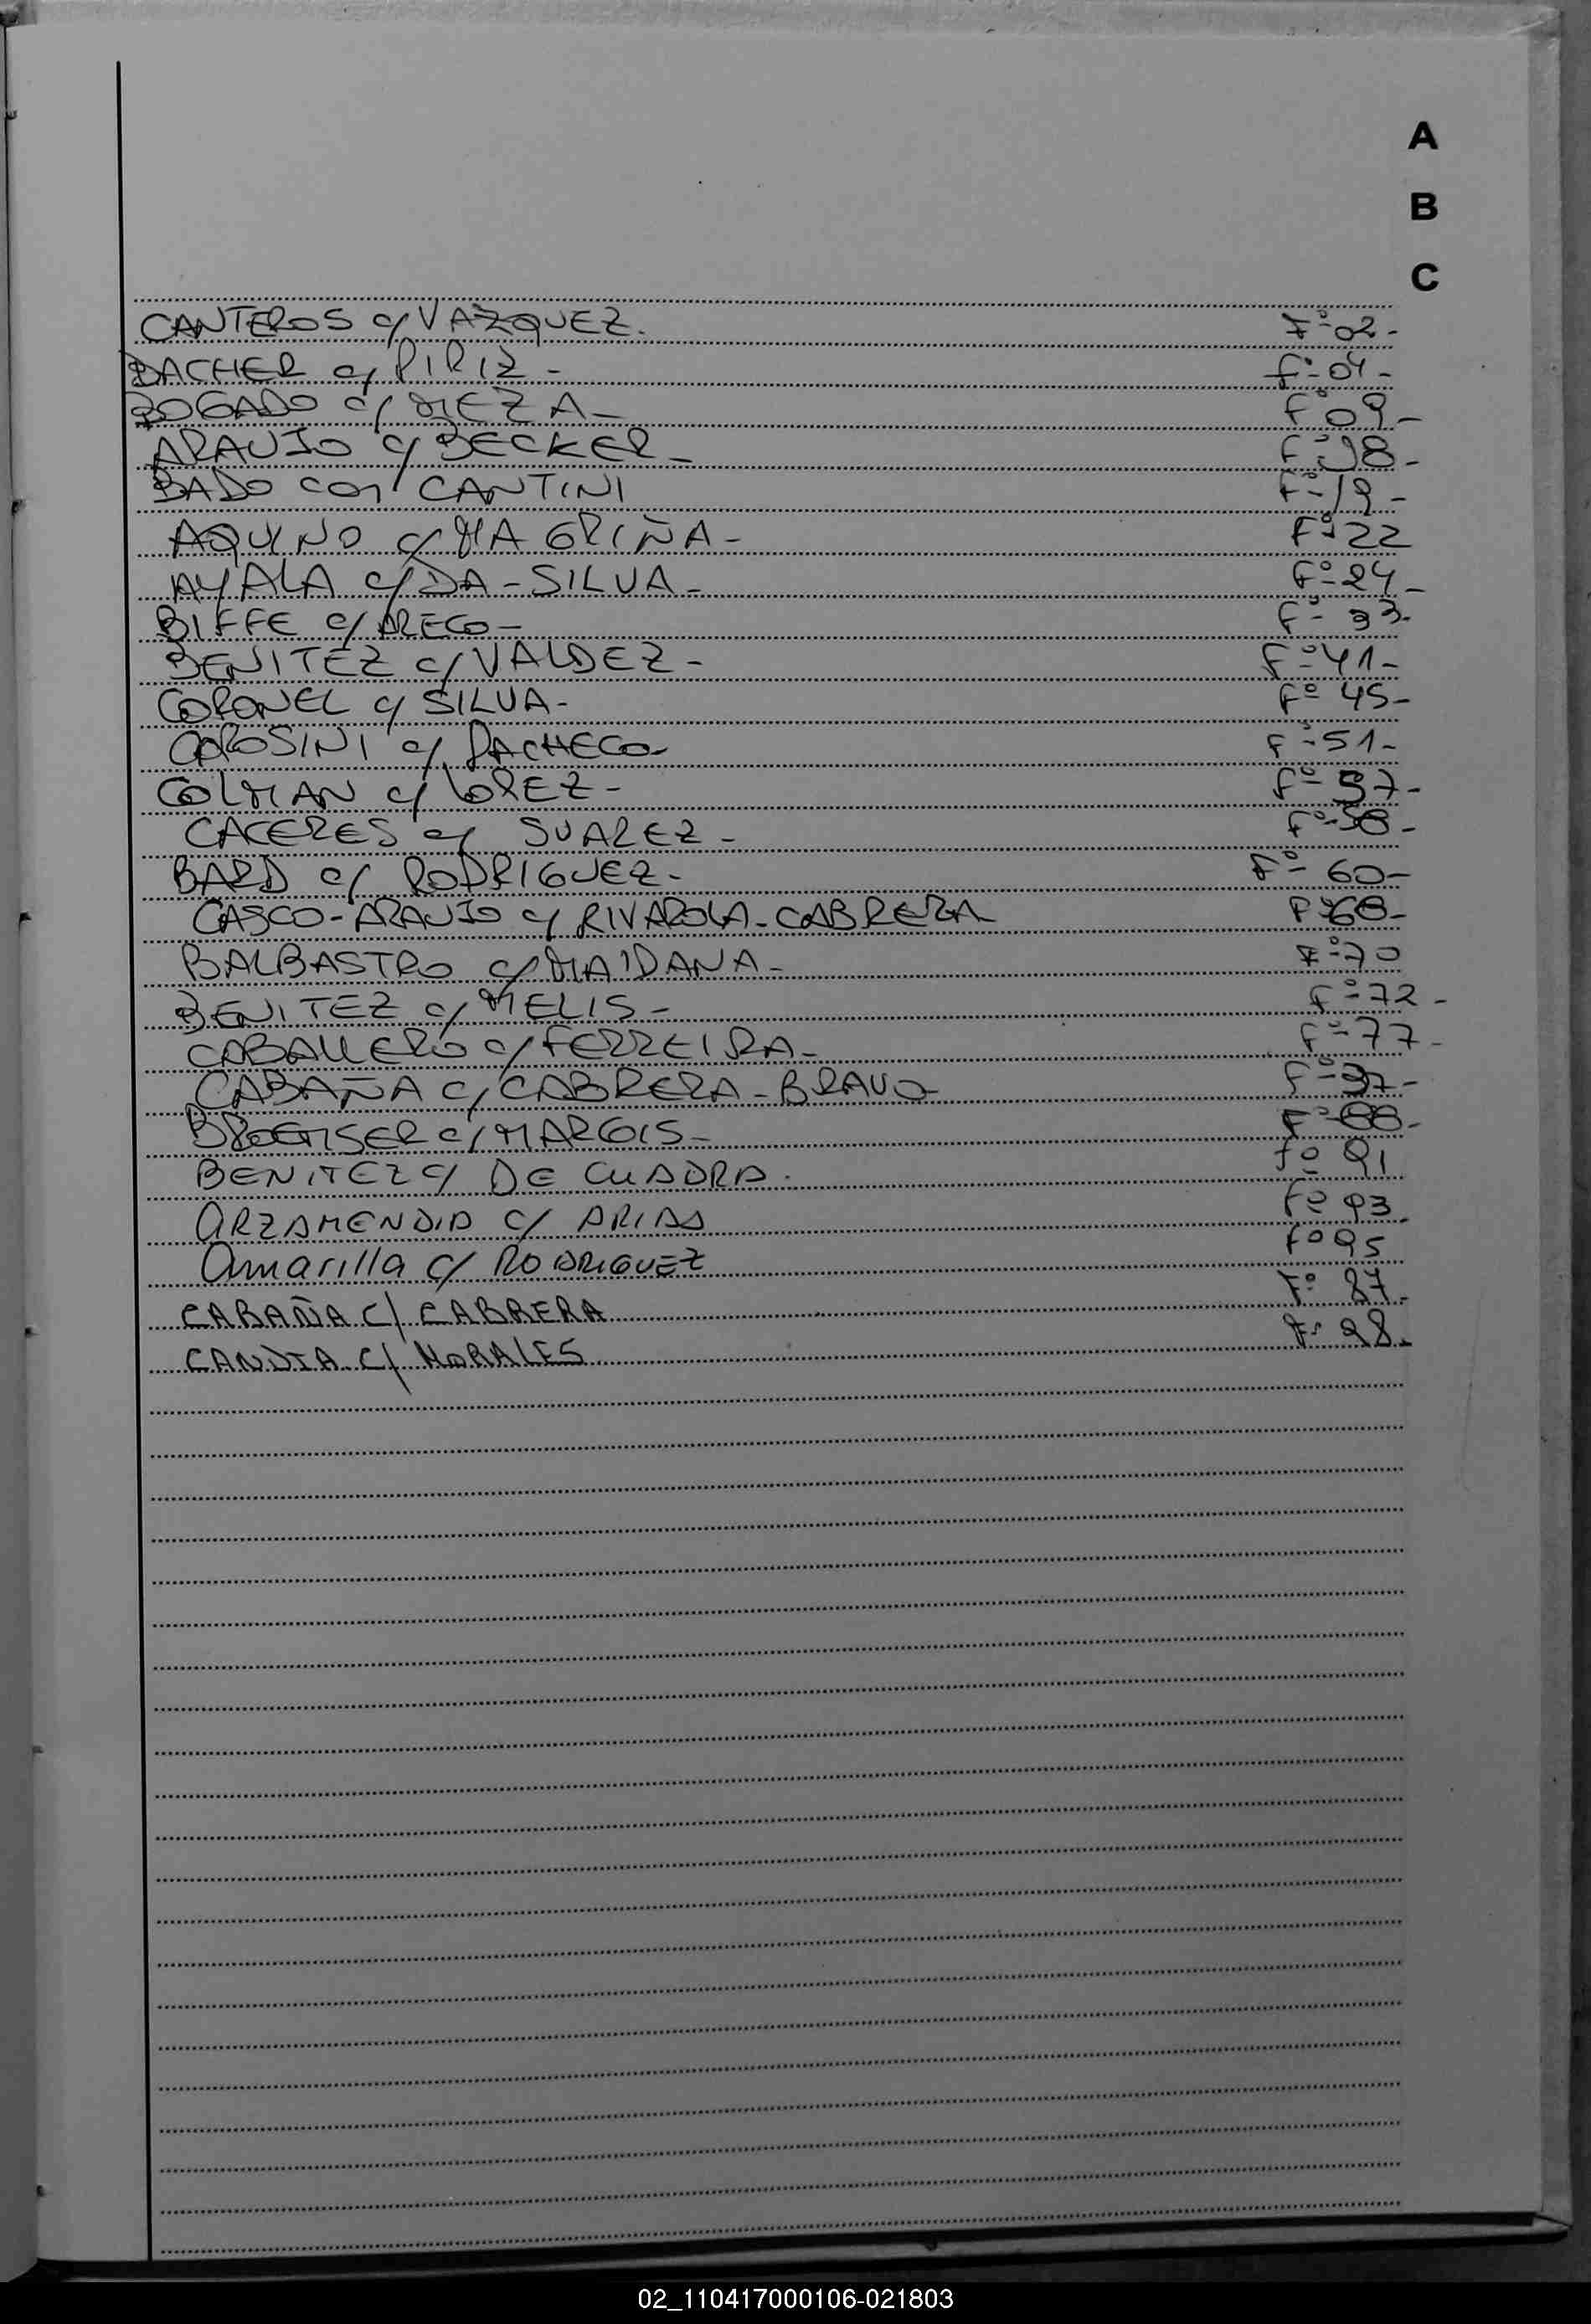 A
B
C
CANTEROS c/ VAZQUEZ. Fº 02-
BACHER c/ PIRIZ - Fº 04-
BOGADO c/ MEZA- Fº 09-
ARAUJO c/ BECKER- Fº 18-
BADO con CANTINI Fº 19-
AQUINO c/ MAGRIÑA- Fº 22
AYALA c/ DA-SILVA- Fº 24-
BIFFE c/ ARECO- Fº 33-
BENITEZ c/ VALDEZ- Fº 41-
CORONEL c/ SILVA- Fº 45-
COROSINI c/ PACHECO- Fº 51-
COLMAN c/ LOPEZ- Fº 57-
CACERES c/ SUAREZ- Fº 58-
BARD c/ RODRIGUEZ- Fº 60-
CASCO-ARAUJO c/ RIVAROLA-CABRERA Fº 68-
BALBASTRO c/ MAIDANA- Fº 70
BENITEZ c/ MELIS- Fº 72-
CABALLERO c/ FERREIRA- Fº 77-
CABAÑA c/ CABRERA-BRAVO Fº
c/ Fº 88-
BENITEZ c/ DE CUADRA. Fº 91
ARZAMENDIA c/ ARIAS Fº 93
Amarilla c/ RODRIGUEZ Fº 95
CABAÑA C/ CABRERA Fº 87-
CANDIA C/ MORALES Fº 98.
02_110417000106-021803